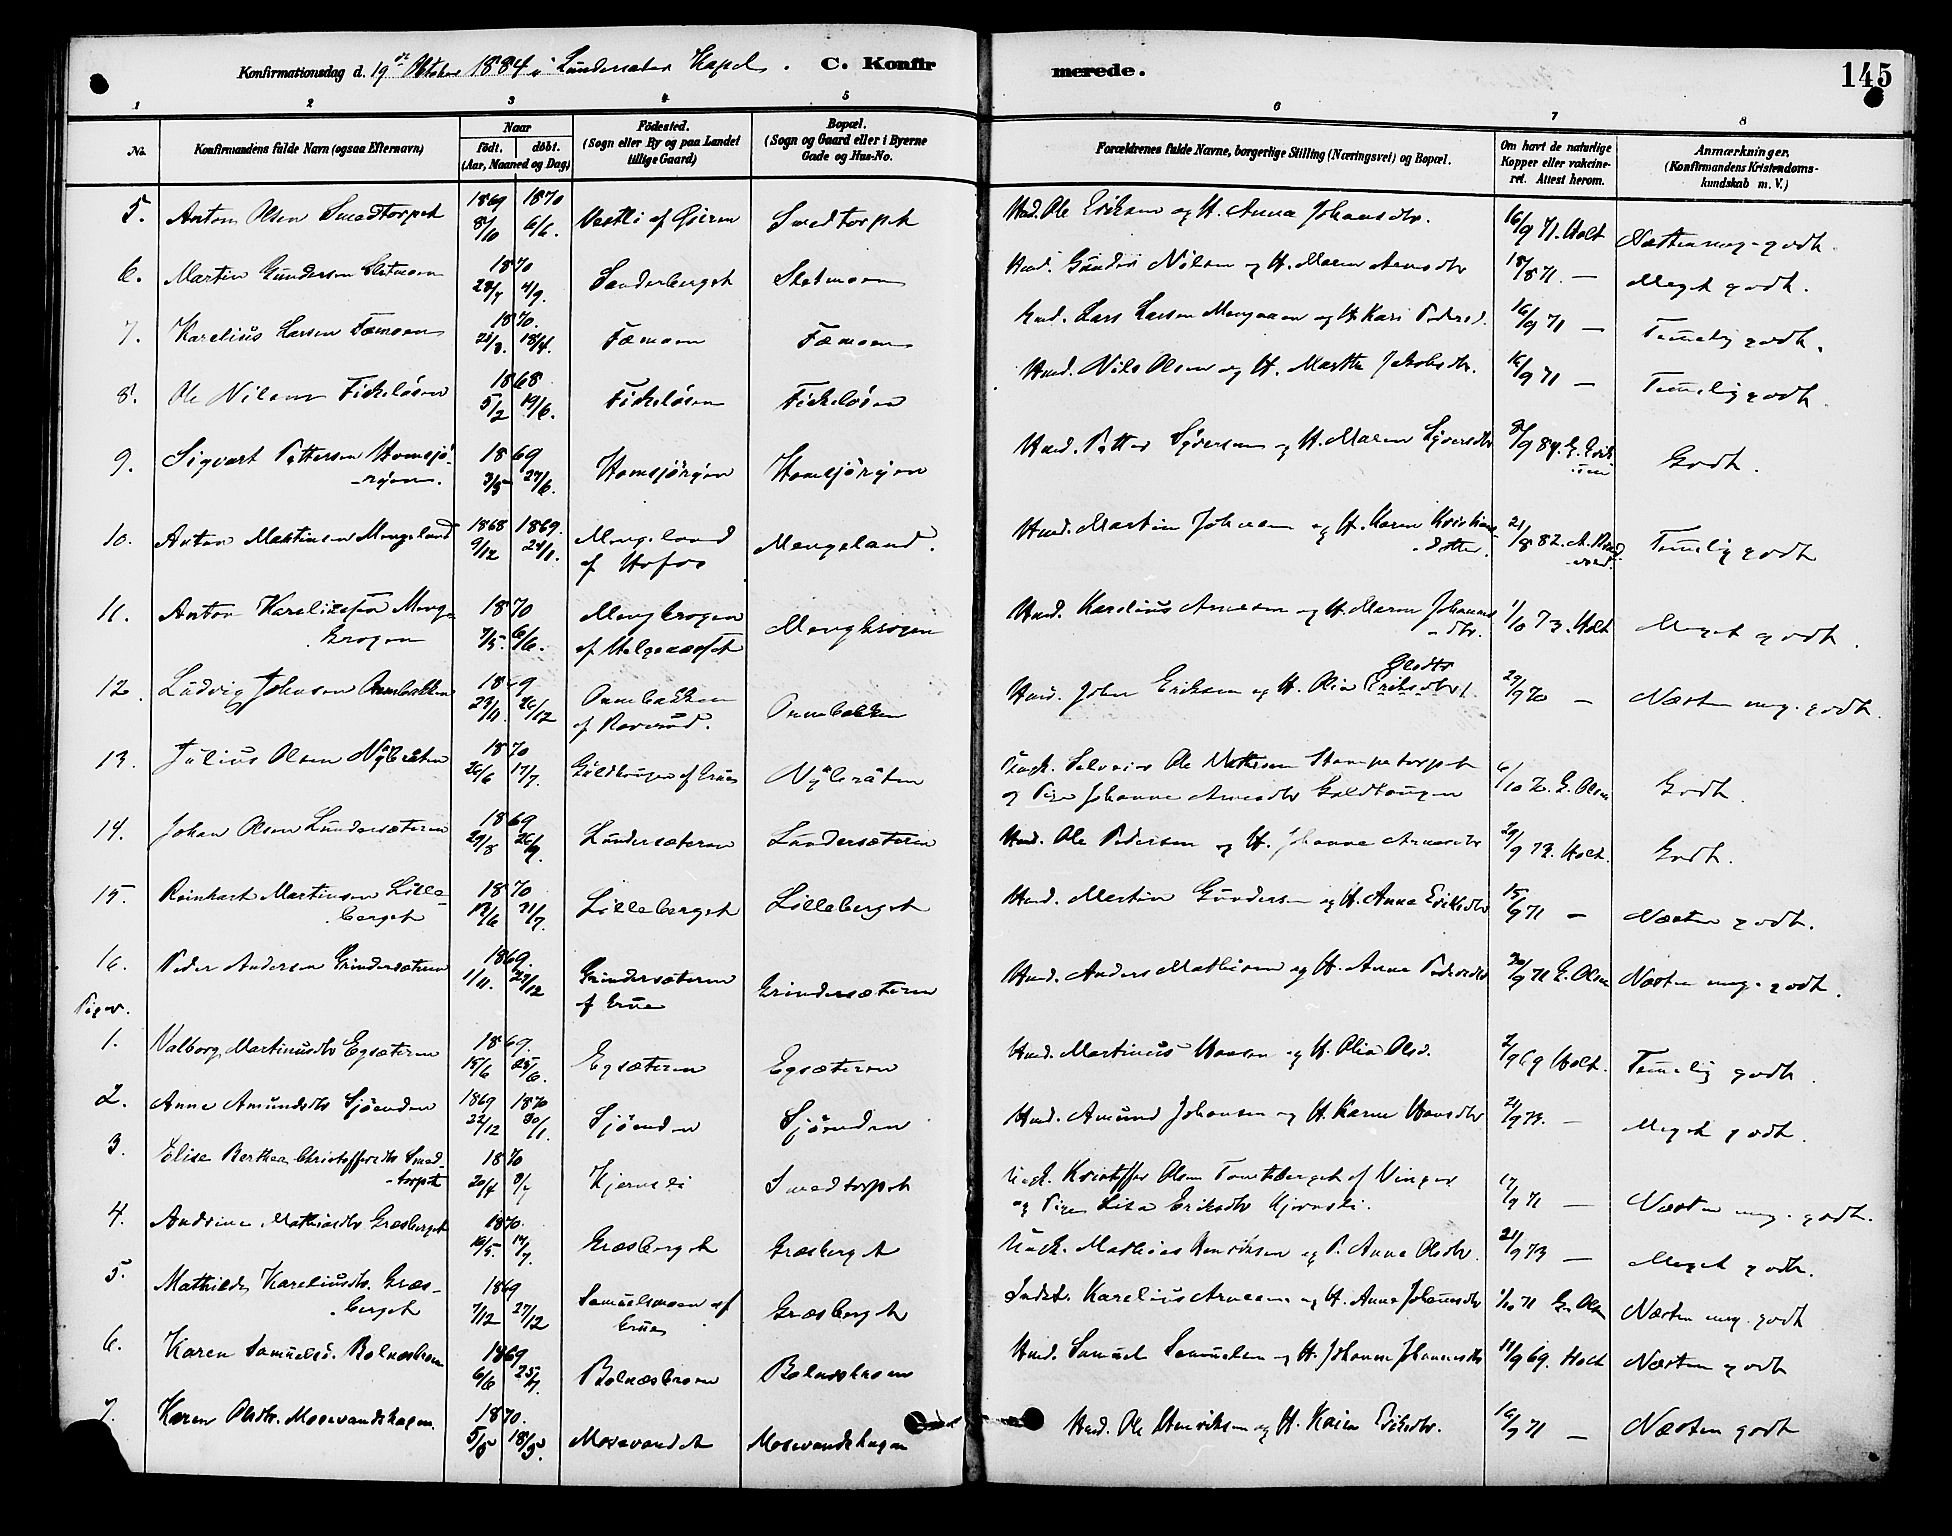 Konfirmationsdag d. 19de Oktober 1884 i Lundersæter Kapel. C. Konfirmerede. 145
1 2 3 4 5 6 7 8
No. Konfirmandens fulde Navn (ogsaa Efternavn) Naar födt. döbt. (Aar, Maaned og Dag) Födested. (Sogn eller By og paa Landet tillige Gaard) Bopæl. (Sogn og Gaard eller i Byerne Gade og Hus-No. Forældrenes fulde Navne, borgerlige Stilling (Næringsvei) og Bopæl. Om havt de naturlige Kopper eller vakcineret. Attest herom. Anmærkninger. (Konfirmandens Kristendomskundskab m. V.)
5. Anton Olsen Smedtorpet 1869 8/10 1870 6/6. Vestli af Gjeren Smedtorpet Huusm. Ole Eriksen og H. Anna Johansdtr. 16/9 71. Holt Næsten meg. godt.
6. Martin Gundersen Sletmoen 1870 28/7 4/9. Sanderberget Sletmoen Gunder Nilsen og H. Maren Arnesdtr 18/8 71. — Meget godt.
7. Karelius Larsen Fæmoen 1870. 21/3. 18/4. Fæmoen Fæmoen Lars Larsen og H. Kari Pedersd. 16/9 71 — Temelig godt.
8. Ole Nilsen Fiskeløsen 1868 5/2 19/6. Fiskeløsen Fiskeløsen Nils Olsen og H. Marthe Jakobsdtr. 16/9 71 — Temelig godt.
9. Sigvart Pettersen Homsjöryen. 1869 3/5 27/6. Homsjöryen Homsjöryen Petter Syversen og H. Maren Syversdtr 84. Godt.
10. Anton Martinsen Mengeland 1868 9/12 1869. 24/1. Mengeland af Hofos Mengeland. Martin Johnsen og H. Karen Kristiansdatter. 21/8 82. Temelig godt
11. Anton Kareliussen Mengkrogen 1870 7/5 6/6. Mengkrogen Mengkrogen Karelius Arnesen og H. Maren Johannesdtr. 1/10 73. Holt Meget godt.
12. Ludvig Johnsen Onnebakken 1869 29/11. 26/12 Onnebakken af Roverud. Onnebakken John Eriksen og H. Olia Olsdtr 29/9 70 — Næsten meg. godt.
13. Julius Olsen Nybråten 1870 26/6 17/7. af Grue Nybråten Ole Mathisen Stampetorpet og Pige Johanne Arnesdtr 6/10 72. E. Olsen Godt.
14. Johan Olsen Lundersæteren 1869 29/8 26/9. Lundersæteren Lundersæteren Ole Pedersen og H. Johanne Arnesdtr 29/9 73. Holt. Godt.
15. Reinhart Martinsen Lilleberget 1870 12/6 31/7. Lilleberget Lilleberget Martin Gundersen og H. Anna Eriksdtr 15/9 71 — Næsten godt.
16. Peder Andersen Grindersæteren 1869. 1/11. 27/12 Grindersæteren af Grue Grindersæteren Anders Mathisen og H. Anne Pedersdtr 30/9 71 E. Olsen Næsten meg. godt.
Piger.
1. Valborg Martinusdtr Egsæteren 1869. 15/6 25/6. Egsæteren Egsæteren Martinus Hansen og H. Olia Olsd. 2/9 69 Holt. Temelig godt.
2. Anne Amundsdtr Sjöenden 1869 22/12 1870 30/1. Sjöenden Sjöenden Amund Johansen og H. Karen Hansdtr 21/9 73. — Meget godt.
3. Elise Berthea Christoffersdtr Smedtorpet 1870 20/4 3/7 Kjernsli Smedtorpet Kristoffer Olsen af Vinger og Pige Lisa Eriksdtr Kjernsli. 17/9 71 — Næsten meg. godt.
4. Andrine Mathiasdtr Græsberget 1870. 16/5. 17/7. Græsberget Græsberget Mathias Henriksen og P. Anne Olsdtr. 21/9 73 — Meget godt.
5. Mathilde Kareliusdtr. Græsberget 1869 7/12 27/12 Samuelsmoen af Grue Græsberget Karelius Arnesen og H. Anne Johannesdtr 1/10 71 E. Olsen Næsten meg. godt
6. Karen Samuelsd. Bolnæskroen 1869 6/6 25/7. Bolnæskroen Bolnæskroen Samuel Samuelsen og H. Johanne Johannesdtr 11/9 69. Holt Næsten godt
7. Karen Olsdtr. Mosevandshagen. 1870. 5/5 18/5. Mosevandet Mosevandshagen Ole Henriksen og H. Karen Eriksdtr. 16/9 71 — Næsten godt